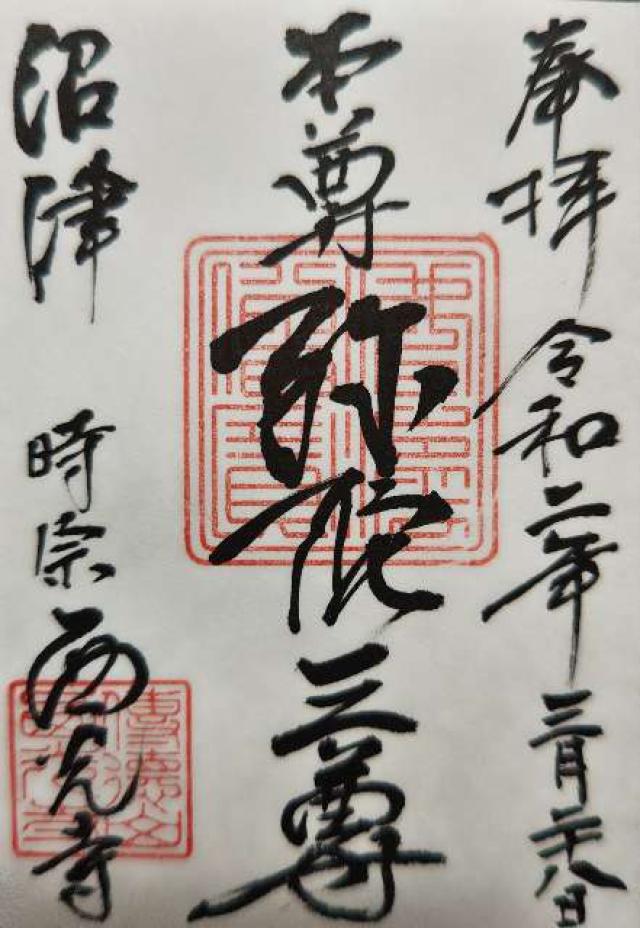 奉拝 令和二年三月二十八日
本尊 弥陀三尊
沼津 時宗 西光寺